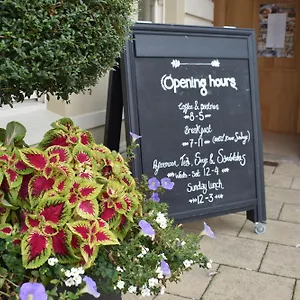 Opening hours
Coffee & pastries
~8-5~
Breakfast
~7-11~ (until 12 on Sundays)
Afternoon Tea, Soup & Sandwiches
~12-4~
Sunday lunch
~12-3~